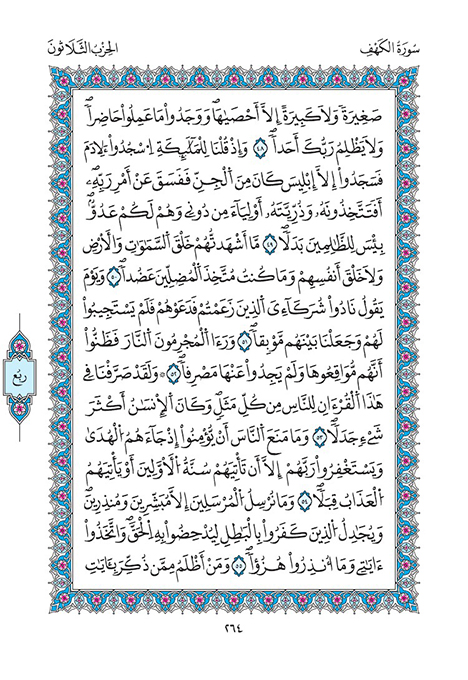 سُورَةُ الكَهْفِ
الحِزْبُ الثَّلَاثُونَ
صَغِيرَةً وَلَا كَبِيرَةً إِلَّا أَحْصَيٰهَا وَوَجَدُوا۟ مَا عَمِلُوا۟ حَاضِراً
وَلَا يَظْلِمُ رَبُّكَ أَحَداً ٤٨ وَإِذْ قُلْنَا لِلْمَلَٰٓئِكَةِ اِ۟سْجُدُوا۟ لِأٓدَمَ
فَسَجَدُوٓا۟ إِلَّآ إِبْلِيسَ كَانَ مِنَ اَ۬لْجِنِّ فَفَسَقَ عَنْ أَمْرِ رَبِّهِۦٓ
أَفَتَتَّخِذُونَهُۥ وَذُرِّيَّتَهُۥٓ أَوْلِيَآءَ مِن دُونِے وَهُمْ لَكُمْ عَدُوُّۢ
بِئْسَ لِلظَّٰلِمِينَ بَدَلًا ٤٩ مَّآ أَشْهَدتُّهُمْ خَلْقَ اَ۬لسَّمَٰوَٰتِ وَالْأَرْضِ
وَلَا خَلْقَ أَنفُسِهِمْ وَمَا كُنتُ مُتَّخِذَ اَ۬لْمُضِلِّينَ عَضُداً ٥٠ وَيَوْمَ
يَقُولُ نَادُوا۟ شُرَكَآءِيَ اَ۬لَّذِينَ زَعَمْتُمْ فَدَعَوْهُمْ فَلَمْ يَسْتَجِيبُوا۟
لَهُمْ وَجَعَلْنَا بَيْنَهُم مَّوْبِقاً ٥١ وَرَءَا اَ۬لْمُجْرِمُونَ اَ۬لنَّارَ فَظَنُّوٓا۟
أَنَّهُم مُّوَاقِعُوهَا وَلَمْ يَجِدُوا۟ عَنْهَا مَصْرِفاً ٥٢ ۞ وَلَقَدْ صَرَّفْنَا فِے
هَٰذَا اَ۬لْقُرْءَانِ لِلنَّاسِ مِن كُلِّ مَثَلٍ وَكَانَ اَ۬لْإِنسَٰنُ أَكْثَرَ
شَےْءٍ جَدَلًا ٥٣ وَمَا مَنَعَ اَ۬لنَّاسَ أَنْ يُّؤْمِنُوٓا۟ إِذْ جَآءَهُمُ اُ۬لْهُدَىٰ
وَيَسْتَغْفِرُوا۟ رَبَّهُمْ إِلَّآ أَن تَأْتِيَهُمْ سُنَّةُ اُ۬لْأَوَّلِينَ أَوْ يَأْتِيَهُمُ
اُ۬لْعَذَابُ قِبَلًا ٥٤ وَمَا نُرْسِلُ اُ۬لْمُرْسَلِينَ إِلَّا مُبَشِّرِينَ وَمُنذِرِينَ
وَيُجَٰدِلُ اُ۬لَّذِينَ كَفَرُوا۟ بِالْبَٰطِلِ لِيُدْحِضُوا۟ بِهِ اِ۬لْحَقَّ وَاتَّخَذُوٓا۟
ءَايَٰتِے وَمَآ أُنذِرُوا۟ هُزُؤاً ٥٥ وَمَنْ أَظْلَمُ مِمَّن ذُكِّرَ بِـَٔايَٰتِ
ربع
٢٦٤